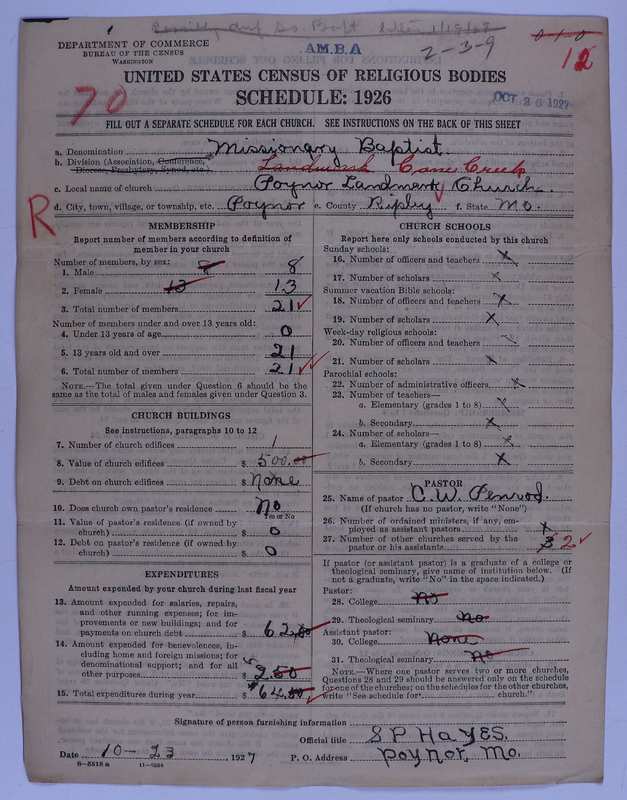 A.M.B.A
2-3-9
DEPARTMENT OF COMMERCE
BUREAU OF THE CENSUS
WASHINGTON
0 1 0
12
UNITED STATES CENSUS OF RELIGIOUS BODIES
SCHEDULE: 1926
70
OCT 26 1927
FILL OUT A SEPARATE SCHEDULE FOR EACH CHURCH. SEE INSTRUCTIONS ON THE BACK OF THIS SHEET
a. Denomination Missionary Baptist.
b. Division (Association, Conference, Diocese, Presbytery, Synod, etc.) Landmark Cane Creek
c. Local name of church Poynor Landmark Church.
d. City, town, village, or township, etc. Poynor e. County Ripley f. State Mo.
R
MEMBERSHIP
Report number of members according to definition of
member in your church
Number of members, by sex:
1. Male 8 8
2. Female 13 13
3. Total number of members 21
Number of members under and over 13 years old:
4. Under 13 years of age 0
5. 13 years old and over 21
6. Total number of members 21
NOTE.—The total given under Question 6 should be the
same as the total of males and females given under Question 3.
CHURCH BUILDINGS
See instructions, paragraphs 10 to 12
7. Number of church edifices 1
8. Value of church edifices $ 500.00
9. Debt on church edifices $ None
10. Does church own pastor's residence No
Yes or No
11. Value of pastor's residence (if owned by
church) $ 0
12. Debt on pastor's residence (if owned by
church) $ 0
EXPENDITURES
Amount expended by your church during last fiscal year
13. Amount expended for salaries, repairs,
and other running expenses; for im-
provements or new buildings; and for
payments on church debt $ 62.00
14. Amount expended for benevolences, in-
cluding home and foreign missions; for
denominational support; and for all
other purposes $ 2.50
15. Total expenditures during year $ 64.50
CHURCH SCHOOLS
Report here only schools conducted by this church
Sunday schools:
16. Number of officers and teachers x
17. Number of scholars x
Summer vacation Bible schools:
18. Number of officers and teachers x
19. Number of scholars x
Week-day religious schools:
20. Number of officers and teachers x
21. Number of scholars x
Parochial schools:
22. Number of administrative officers x
23. Number of teachers—
a. Elementary (grades 1 to 8) x
b. Secondary x
24. Number of scholars—
a. Elementary (grades 1 to 8) x
b. Secondary x
PASTOR
25. Name of pastor C. W. Penrod.
(If church has no pastor, write "None")
26. Number of ordained ministers, if any, em-
ployed as assistant pastors x
27. Number of other churches served by the
pastor or his assistants 3 2
If pastor (or assistant pastor) is a graduate of a college or
theological seminary, give name of institution below. (If
not a graduate, write "No" in the space indicated.)
Pastor:
28. College No
29. Theological seminary No
Assistant pastor:
30. College None
31. Theological seminary No
NOTE.—Where one pastor serves two or more churches,
Questions 28 and 29 should be answered only on the schedule
for one of the churches; on the schedules for the other churches,
write "See schedule for church."
Signature of person furnishing information
Official title S P Hayes.
Date 10-23 1927 P. O. Address Poynor, Mo.
8-5518 a 11-9054